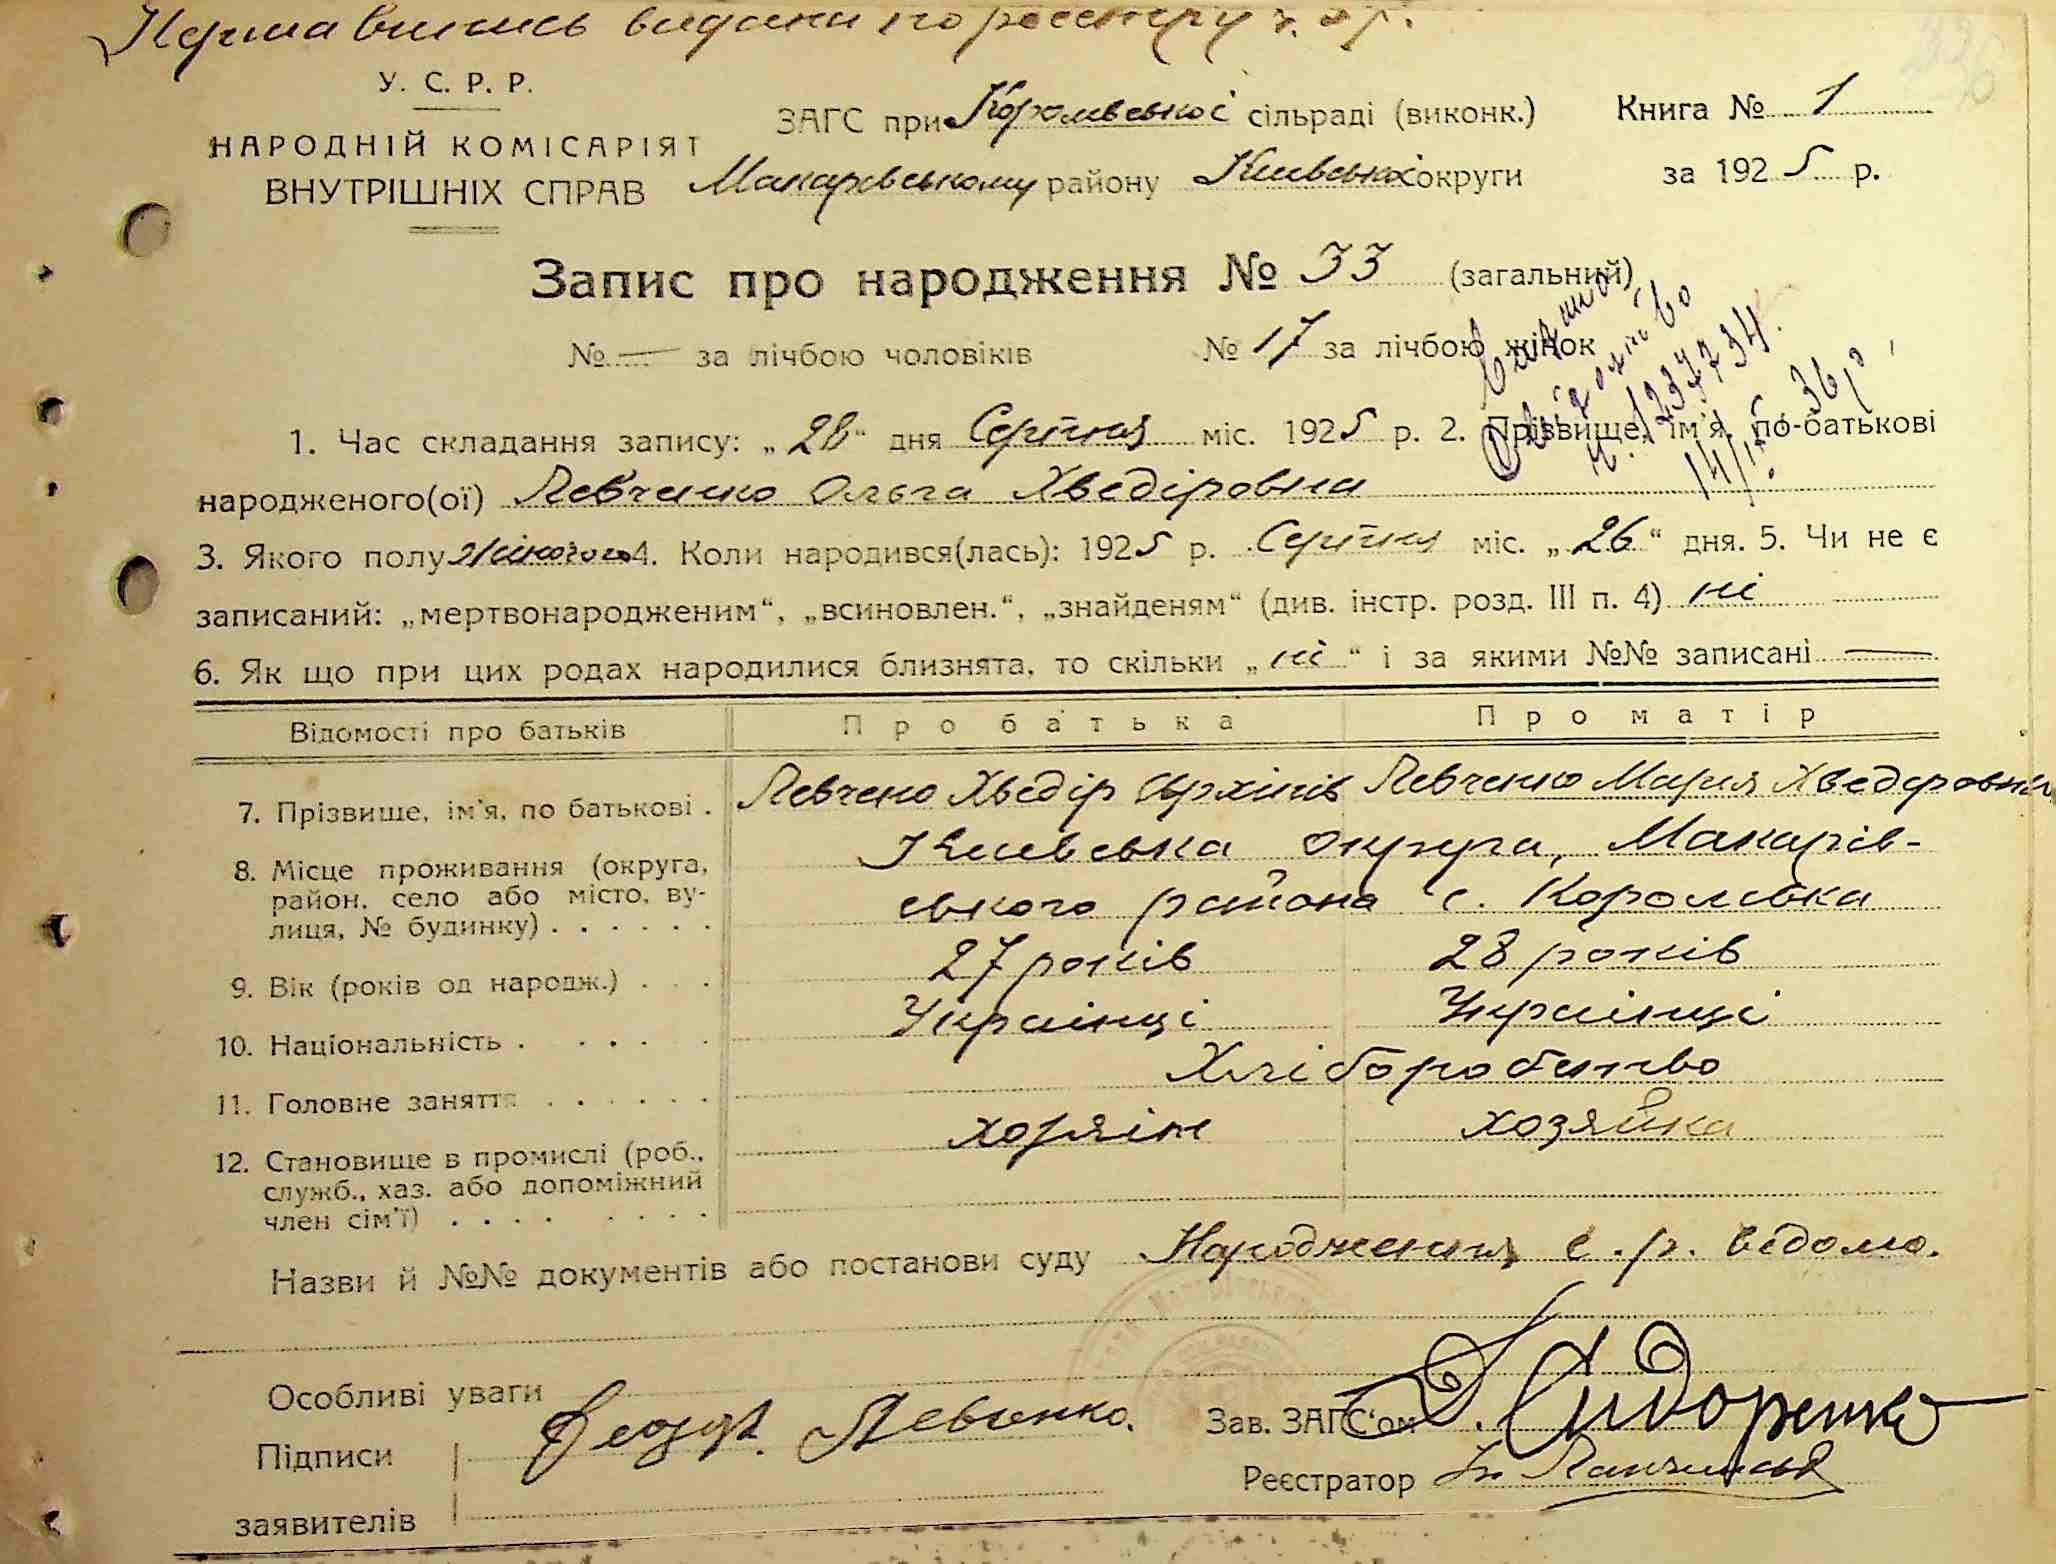 Перша випись видана по реєстру
У. С. Р. Р.
НАРОДНІЙ КОМІСАРІЯТ
ВНУТРІШНІХ СПРАВ
ЗАГС при Королівської сільраді (виконк.)
Макарівському району Київської округи
Книга № 1
за 1925 р.
Запис про народження № 33 (загальний)
№ — за лічбою чоловіків № 17 за лічбою жінок
Видано
свідоцтво
№ 237734
14/
36 р.
1. Час складання запису: „28“ дня Серпня міс. 1925 р. 2. Прізвище, ім'я, по-батькові
народженого(ої) Левченко Ольга Хведіровна
3. Якого полу жіночого 4. Коли народився(лась): 1925 р. Серпня міс. „26“ дня. 5. Чи не є
записаний: „мертвонародженим“, „всиновлен.“, „знайденям“ (див. інстр. розд. III п. 4) ні
6. Як що при цих родах народилися близнята, то скільки „ні“ і за якими №№ записані —
Відомості про батьків Про батька Про матір
7. Прізвище, ім'я, по батькові . Левченко Хведір Архипів Левченко Мария Хведоровна
8. Місце проживання (округа, район, село або місто, вулиця, № будинку) . . . . . . Київська округа, Макарів-
ського района с. Королівка
9. Вік (років од народж.) . . . 27 років 28 років
10. Національність . . . . . Українці Українці
11. Головне заняття . . . . . . Хліборобство
12. Становище в промислі (роб., служб., хаз. або допоміжний член сім'ї) . . . . . . . . хозяїн хозяйка
Назви й №№ документів або постанови суду Народження с. р. відомо.
Особливі уваги
Підписи
заявителів
Левченко.
Зав. ЗАГС'ом Сидоренко
Реєстратор